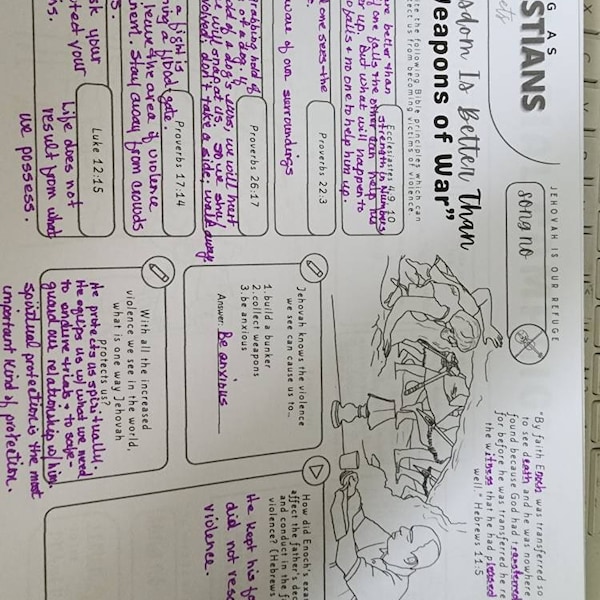 G AS
STIANS
ets
JEHOVAH IS OUR REFUGE
song no
"By faith Enoch was transferred so
to see death and he was nowhere
found because God had transferred
for before he was transferred he re
the witness that he had pleased
well." Hebrews 11:5
sdom Is Better Than
eapons of War"
te the following Bible principles which can
ect us from becoming victims of violence.
Ecclesiastes 4:9, 10
are better than
strength in numbers
if one falls the other can help his
r up. But what will happen to
falls & no one to help him up.
Proverbs 22:3
d one sees the
ware of our surroundings
Proverbs 26:17
grabbing hold of
of a dog. If
old of a dog's ears, we will hurt
will snap at us. So we shu
volved; don't take a side; walk away
Proverbs 17:14
a fight is
ing a flood-gate.
leave the area of violence
nent. Stay away from crowds
s.
Luke 12:15
sk your
cted your
ns.
Life does not
result from what
we possess.
Jehovah knows the violence
we see can cause us to...
1. build a bunker
2. collect weapons
3. be anxious
Answer: Be anxious
With all the increased
violence we see in the world,
what is one way Jehovah
protects us?
He protects us spiritually.
He equips us w/ what we need
to endure trials & to safe-
guard our relationship w/ him
spiritual protection is the most
important kind of protection.
How did Enoch's exa
affect the Father's dec
and conduct in the f
violence? (Hebrews
He kept his fa
did not reso
violence.